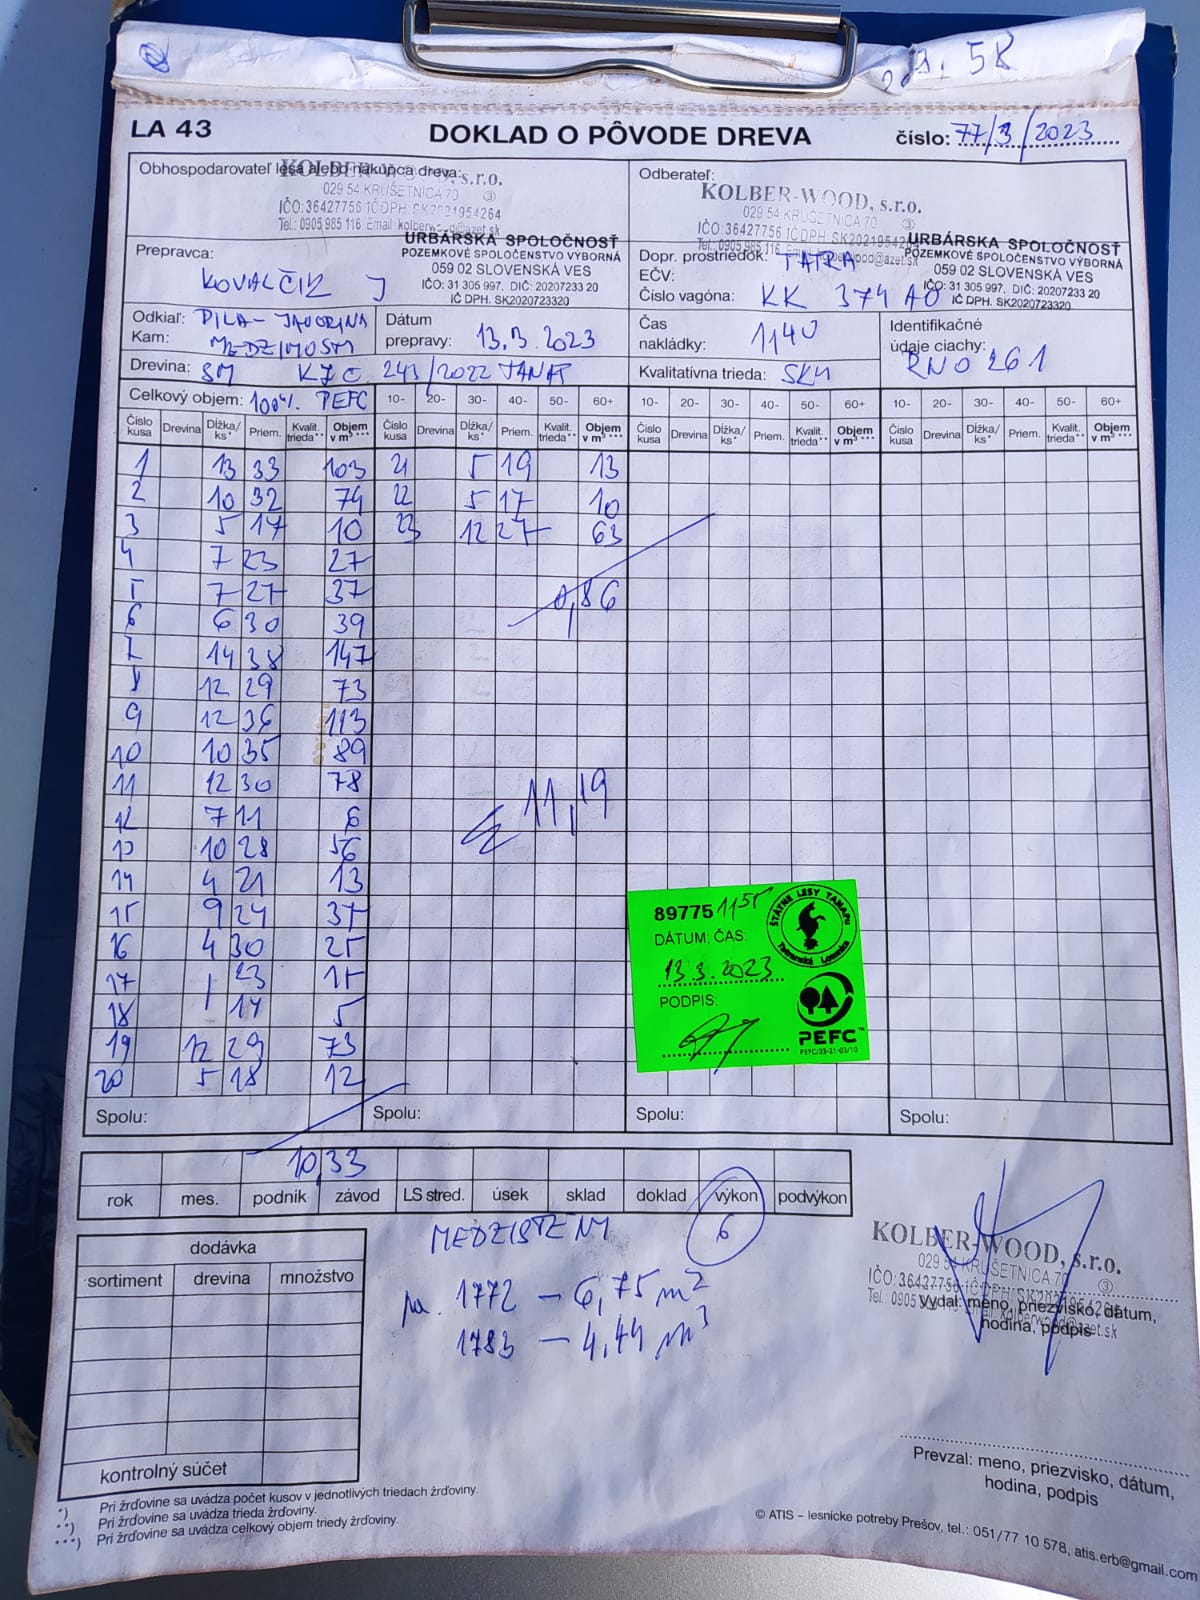 29. 58
LA 43 DOKLAD O PÔVODE DREVA číslo: 77/3/2023
Obhospodarovateľ lesa alebo nákupca dreva:
KOLBER-WOOD, s.r.o.
029 54 KRUŠETNICA 70 ③
IČO:36427756 IČ DPH: SK2021954264
Tel.: 0905 985 116 Email kolberwood@azet.sk
Odberateľ:
KOLBER-WOOD, s.r.o.
029 54 KRUŠETNICA 70 ③
IČO:36427756 IČ DPH: SK2021954264
Tel.: 0905 985 116 Email kolberwood@azet.sk
URBÁRSKA SPOLOČNOSŤ
POZEMKOVÉ SPOLOČENSTVO VÝBORNÁ
059 02 SLOVENSKÁ VES
IČO: 31 305 997, DIČ: 20207233 20
IČ DPH. SK2020723320
URBÁRSKA SPOLOČNOSŤ
POZEMKOVÉ SPOLOČENSTVO VÝBORNÁ
059 02 SLOVENSKÁ VES
IČO: 31 305 997, DIČ: 20207233 20
IČ DPH. SK2020723320
Prepravca:
KOVALČIK J
Dopr. prostriedok: TATRA
EČV:
Číslo vagóna: KK 374 AO
Odkiaľ: PILA-JAVORINA
Kam: MEDZIMOSTI
Dátum
prepravy: 13.3.2023
Čas
nakládky: 1140
Identifikačné
údaje ciachy:
RNO 261
Drevina: SM KZC 243/2022 TANAP
Kvalitatívna trieda: SKM
Celkový objem: 100% PEFC 10- 20- 30- 40- 50- 60+ 10- 20- 30- 40- 50- 60+ 10- 20- 30- 40- 50- 60+
Číslo kusa Drevina Dĺžka/ks* Priem. Kvalit. trieda** Objem v m³*** Číslo kusa Drevina Dĺžka/ks* Priem. Kvalit. trieda** Objem v m³*** Číslo kusa Drevina Dĺžka/ks* Priem. Kvalit. trieda** Objem v m³*** Číslo kusa Drevina Dĺžka/ks* Priem. Kvalit. trieda** Objem v m³***
1 13 33 103 21 5 19 13
2 10 32 74 22 5 17 10
3 5 17 10 23 12 27 63
4 7 23 27
5 7 27 37 0,86
6 6 30 39
7 14 38 147
8 12 29 73
9 12 36 113
10 10 35 89
11 12 30 78
12 7 11 6 11,19
13 10 28 56
14 4 21 13
15 9 24 37
16 4 30 25
17 23 15
18 14 5
19 12 29 73
20 5 18 12
89775 1155
DÁTUM; ČAS:
13.3.2023
PODPIS:
ŠTÁTNE LESY TANAPu
Tatranská Lomnica
PEFC™
PEFC/23-21-03/10
Spolu: Spolu: Spolu: Spolu:
10,33
rok mes. podnik závod LS stred. úsek sklad doklad výkon podvýkon
6
dodávka
sortiment drevina množstvo
kontrolný súčet
1772 - 6,75 m2
1783 - 4,44 m3
KOLBER-WOOD, s.r.o.
029 54 KRUŠETNICA 70 ③
IČO:36427756 IČ DPH: SK2021954264
Tel.: 0905 985 116 Email kolberwood@azet.sk
Vydal: meno, priezvisko, dátum,
hodina, podpis
Prevzal: meno, priezvisko, dátum,
hodina, podpis
*) Pri žrďovine sa uvádza počet kusov v jednotlivých triedach žrďoviny.
**) Pri žrďovine sa uvádza trieda žrďoviny.
***) Pri žrďovine sa uvádza celkový objem triedy žrďoviny.
© ATIS – lesnícke potreby Prešov, tel.: 051/77 10 578, atis.erb@gmail.com